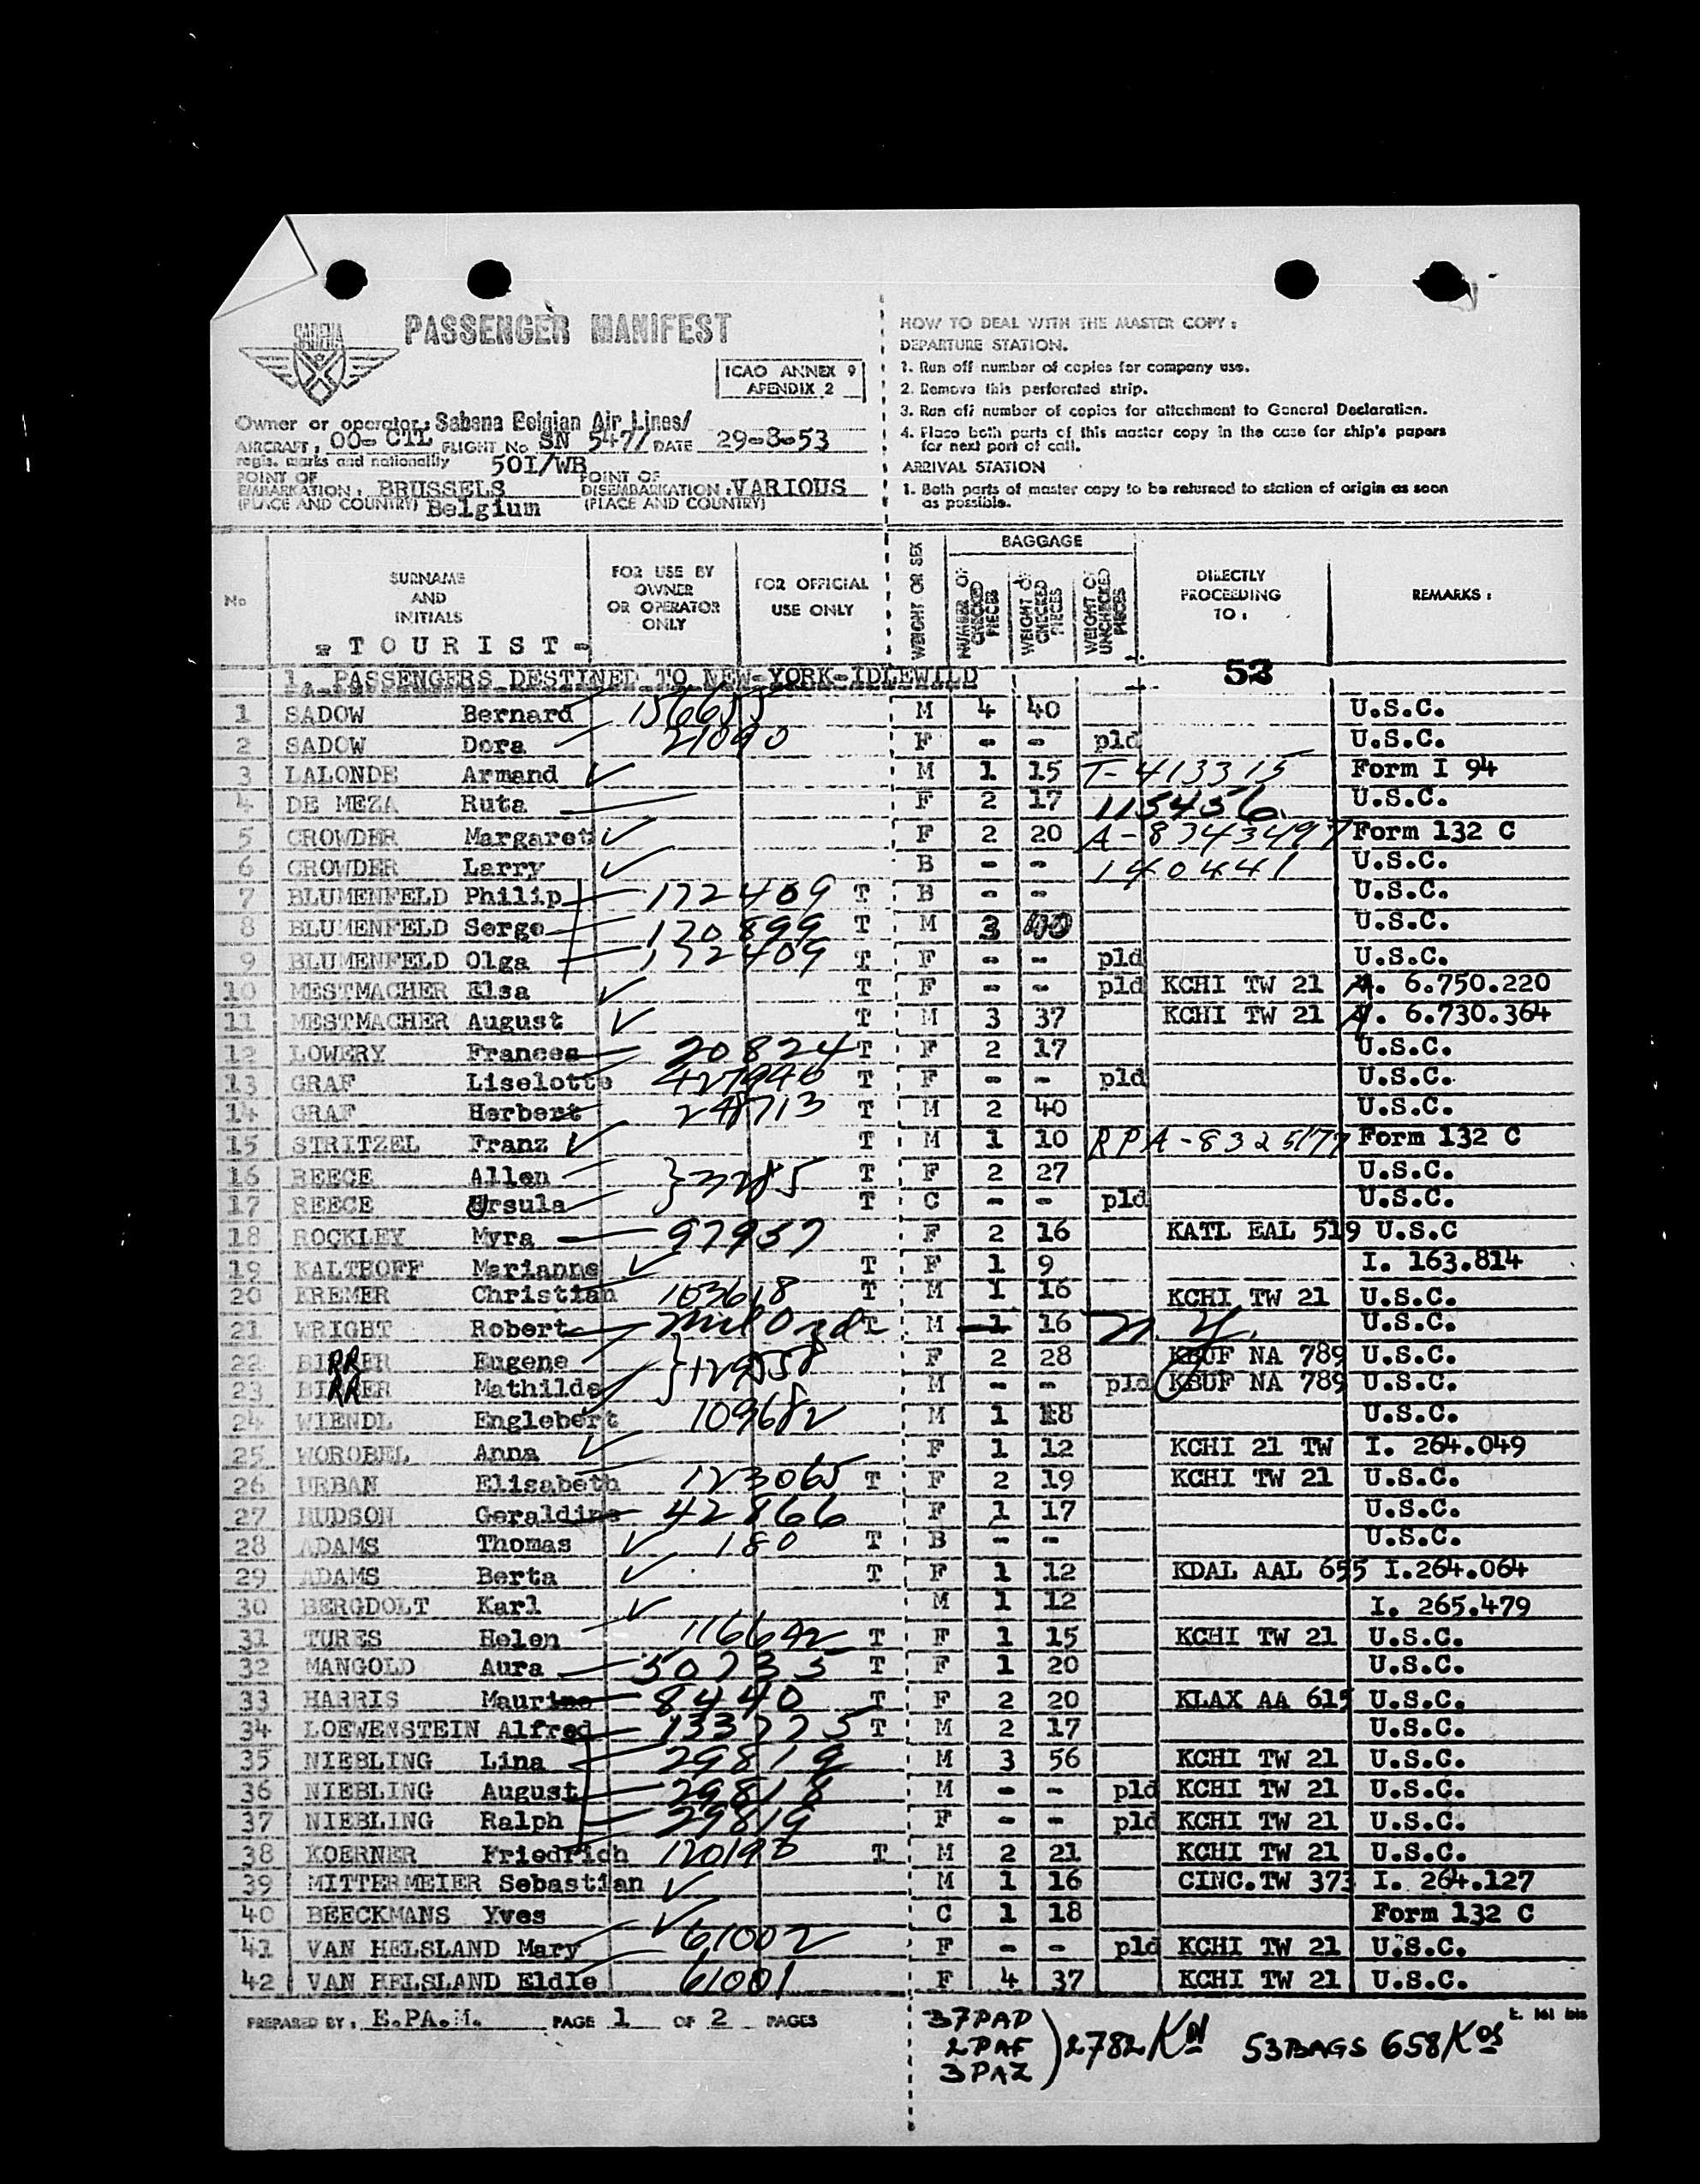 SABENA
PASSENGER MANIFEST
ICAO ANNEX 9
APENDIX 2
Owner or operator: Sabena Belgian Air Lines/
AIRCRAFT: OO-CTL FLIGHT No SN 547/ DATE 29-8-53
regis. marks and nationality 501/WB
POINT OF EMBARKATION: BRUSSELS POINT OF DISEMBARKATION: VARIOUS
(PLACE AND COUNTRY) Belgium (PLACE AND COUNTRY)
HOW TO DEAL WITH THE MASTER COPY:
DEPARTURE STATION.
1. Run off number of copies for company use.
2. Remove this perforated strip.
3. Run off number of copies for attachment to General Declaration.
4. Place both parts of this master copy in the case for ship's papers
for next port of call.
ARRIVAL STATION
1. Both parts of master copy to be returned to station of origin as soon
as possible.
No
SURNAME AND INITIALS
FOR USE BY OWNER OR OPERATOR ONLY
FOR OFFICIAL USE ONLY
WEIGHT OR SEX
BAGGAGE
NUMBER OF CHECKED PIECES
WEIGHT OF CHECKED PIECES
WEIGHT OF UNCHECKED PIECES
DIRECTLY PROCEEDING TO:
REMARKS:
- T O U R I S T -
1. PASSENGERS DESTINED TO NEW-YORK-IDLEWILD 53
1 SADOW Bernard 156655 M 4 40 U.S.C.
2 SADOW Dora 21090 F - - pld U.S.C.
3 LALONDE Armand ✓ M 1 15 T-413315 Form I 94
4 DE MEZA Ruta F 2 17 1154356 U.S.C.
5 CROWDER Margaret ✓ F 2 20 A-8343497 Form 132 C
6 CROWDER Larry ✓ B - - 140441 U.S.C.
7 BLUMENFELD Philip 172409 T B - - U.S.C.
8 BLUMENFELD Serge 120899 T M 3 40 U.S.C.
9 BLUMENFELD Olga 172409 T F - - pld U.S.C.
10 MESTMACHER Elsa ✓ T F - - pld KCHI TW 21 A. 6.750.220
11 MESTMACHER August ✓ T M 3 37 KCHI TW 21 A. 6.730.364
12 LOWERY Frances 20824 T F 2 17 U.S.C.
13 GRAF Liselotte 427940 T F - - pld U.S.C.
14 GRAF Herbert 248713 T M 2 40 U.S.C.
15 STRITZEL Franz ✓ T M 1 10 RPA-8325177 Form 132 C
16 REECE Allen } T F 2 27 U.S.C.
17 REECE Ursula T C - - pld U.S.C.
18 ROCKLEY Myra 97937 F 2 16 KATL EAL 519 U.S.C
19 KALTHOFF Marianne ✓ T F 1 9 I. 163.814
20 KREMER Christian 103618 T M 1 16 KCHI TW 21 U.S.C.
21 WRIGHT Robert Mil Ord T M 1 16 U.S.C.
22 BIRRER Eugene } 129558 F 2 28 KBUF NA 789 U.S.C.
23 BIRRER Mathilde M - - pld KBUF NA 789 U.S.C.
24 WIENDL Englebert 109682 M 1 18 U.S.C.
25 WOROBEL Anna ✓ F 1 12 KCHI 21 TW I. 264.049
26 URBAN Elisabeth 123065 T F 2 19 KCHI TW 21 U.S.C.
27 HUDSON Geraldine 42866 F 1 17 U.S.C.
28 ADAMS Thomas ✓ 180 T B - - U.S.C.
29 ADAMS Berta ✓ T F 1 12 KDAL AAL 655 I.264.064
30 BERGDOLT Karl ✓ M 1 12 I. 265.479
31 TURES Helen 116642 T F 1 15 KCHI TW 21 U.S.C.
32 MANGOLD Aura 50733 T F 1 20 U.S.C.
33 HARRIS Maurine 8440 T F 2 20 KLAX AA 615 U.S.C.
34 LOEWENSTEIN Alfred 133775 T M 2 17 U.S.C.
35 NIEBLING Lina 29819 M 3 56 KCHI TW 21 U.S.C.
36 NIEBLING August 29818 M - - pld KCHI TW 21 U.S.C.
37 NIEBLING Ralph 29819 F - - pld KCHI TW 21 U.S.C.
38 KOERNER Friedrich 120193 T M 2 21 KCHI TW 21 U.S.C.
39 MITTERMEIER Sebastian ✓ M 1 16 CINC.TW 373 I. 264.127
40 BEECKMANS Yves ✓ C 1 18 Form 132 C
41 VAN HELSLAND Mary 61002 F - - pld KCHI TW 21 U.S.C.
42 VAN HELSLAND Eldle 61001 F 4 37 KCHI TW 21 U.S.C.
PREPARED BY: E.PA.M. PAGE 1 OF 2 PAGES
37 PAP
2 PAF
3 PAZ
) 2782 Kos 53 BAGS 658 Kos